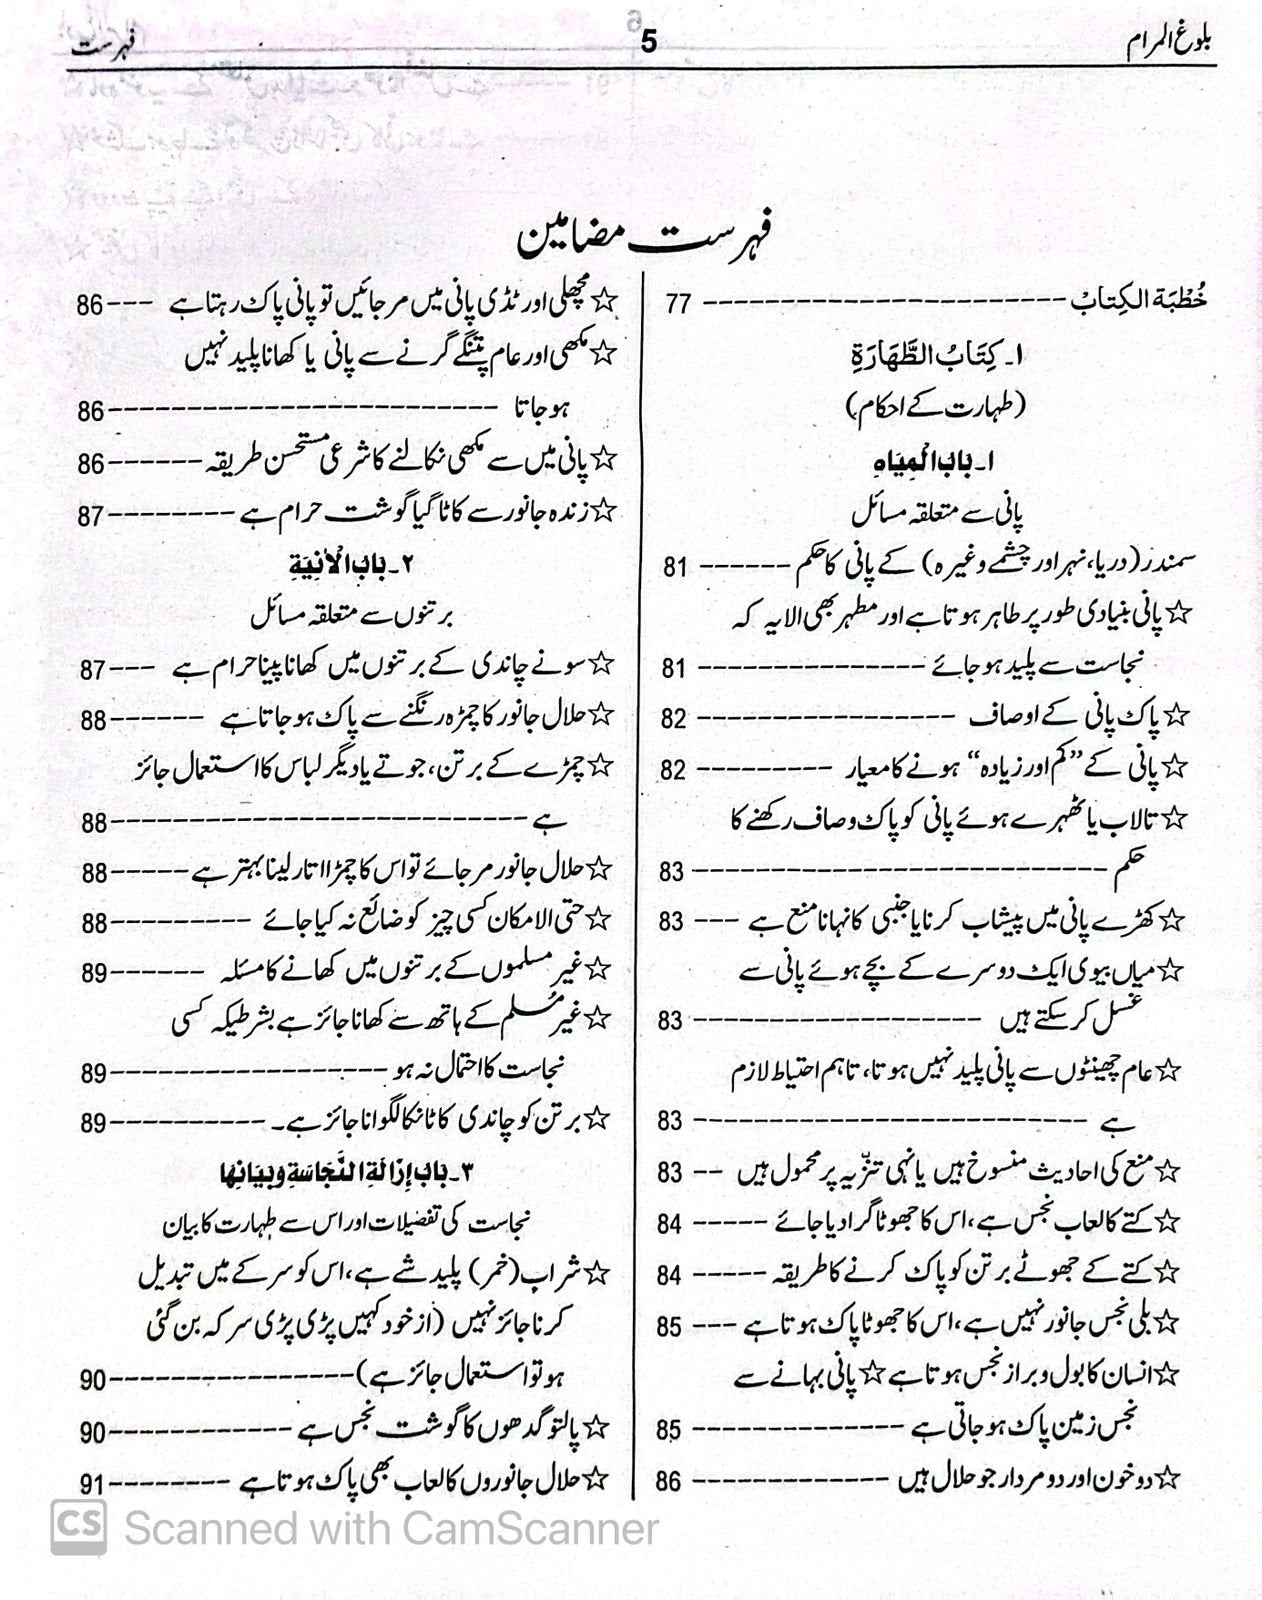 بلوغ المرام
5
فہرست
فہرست مضامین
خُطْبَة الكِتابْ ------------------------ 77
۱۔ كِتَابُ الطَّهَارَةِ
(طہارت کے احکام)
۱۔ بَابُ الْمِيَاهِ
پانی سے متعلقہ مسائل
سمندر (دریا، نہر اور چشمے وغیرہ) کے پانی کا حکم ------ 81
☆ پانی بنیادی طور پر طاہر ہوتا ہے اور مطہر بھی الا یہ کہ
نجاست سے پلید ہو جائے --------------- 81
☆ پاک پانی کے اوصاف ----------------- 82
☆ پانی کے ”کم اور زیادہ“ ہونے کا معیار --------- 82
☆ تالاب یا ٹھہرے ہوئے پانی کو پاک و صاف رکھنے کا
حکم ---------------------------- 83
☆ کھڑے پانی میں پیشاب کرنا یا جنبی کا نہانا منع ہے --- 83
☆ میاں بیوی ایک دوسرے کے بچے ہوئے پانی سے
غسل کر سکتے ہیں ------------------- 83
☆ عام چھینٹوں سے پانی پلید نہیں ہوتا، تاہم احتیاط لازم
ہے -------------------------- 83
☆ منع کی احادیث منسوخ ہیں یا نہی تنزیہ پر محمول ہیں -- 83
☆ کتے کا لعاب نجس ہے، اس کا جھوٹا گرا دیا جائے ----- 84
☆ کتے کے جھوٹے برتن کو پاک کرنے کا طریقہ ----- 84
☆ بلی نجس جانور نہیں ہے، اس کا جھوٹا پاک ہوتا ہے --- 85
☆ انسان کا بول و براز نجس ہوتا ہے ☆ پانی بہانے سے
نجس زمین پاک ہو جاتی ہے -------------- 85
☆ دو خون اور دو مردار جو حلال ہیں ------------- 86
☆ مچھلی اور ٹڈی پانی میں مر جائیں تو پانی پاک رہتا ہے --- 86
☆ مکھی اور عام پتنگے گرنے سے پانی یا کھانا پلید نہیں
ہو جاتا -------------------------- 86
☆ پانی میں سے مکھی نکالنے کا شرعی مستحسن طریقہ ------ 86
☆ زندہ جانور سے کاٹا گیا گوشت حرام ہے -------- 87
۲۔ بَابُ الْآنِيَةِ
برتنوں سے متعلقہ مسائل
☆ سونے چاندی کے برتنوں میں کھانا پینا حرام ہے --- 87
☆ حلال جانور کا چمڑہ رنگنے سے پاک ہو جاتا ہے ------ 88
☆ چمڑے کے برتن، جوتے یا دیگر لباس کا استعمال جائز
ہے ---------------------------- 88
☆ حلال جانور مر جائے تو اس کا چمڑا اتار لینا بہتر ہے ----- 88
☆ حتی الامکان کسی چیز کو ضائع نہ کیا جائے --------- 88
☆ غیر مسلموں کے برتنوں میں کھانے کا مسئلہ ------ 89
☆ غیر مُسلم کے ہاتھ سے کھانا جائز ہے بشرطیکہ کسی
نجاست کا احتمال نہ ہو ------------------ 89
☆ برتن کو چاندی کا ٹانکا لگوانا جائز ہے۔ ---------- 89
۳۔ بَابُ إِزَالَةِ النَّجَاسَةِ وبَيَانِها
نجاست کی تفصیلات اور اس سے طہارت کا بیان
☆ شراب (خمر) پلید شے ہے، اس کو سرکے میں تبدیل
کرنا جائز نہیں (از خود کہیں پڑی پڑی سرکہ بن گئی
ہو تو استعمال جائز ہے) ---------------- 90
☆ پالتو گدھوں کا گوشت نجس ہے ------------ 90
☆ حلال جانوروں کا لعاب بھی پاک ہوتا ہے -------- 91
CS Scanned with CamScanner